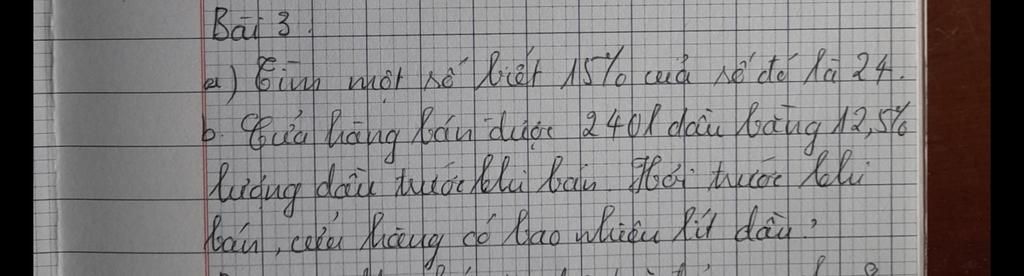 Bài 3.
a) Tìm một số biết 15% của số đó là 24.
b. Cửa hàng bán được 240l dầu bằng 12,5%
lượng dầu trước khi bán. Hỏi trước khi
bán, cửa hàng có bao nhiêu lít dầu?